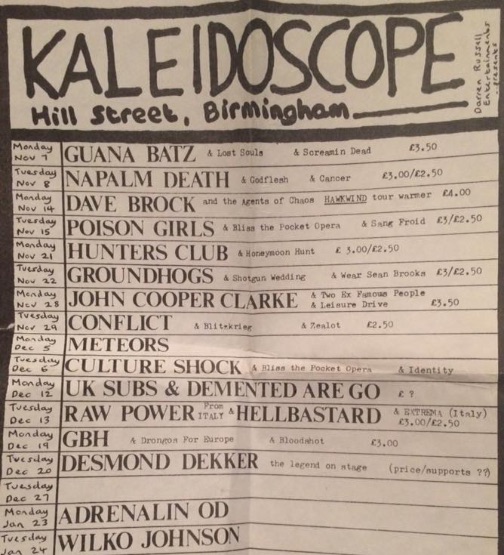 KALEIDOSCOPE
Hill Street, Birmingham
Darren Russell
Entertainments
presents
Monday Nov 7 GUANA BATZ & Lost Souls & Screamin Dead £3.50
Tuesday Nov 8 NAPALM DEATH & Godflesh & Cancer £3.00/£2.50
Monday Nov 14 DAVE BROCK and the Agents of Chaos HAWKWIND tour warmer £4.00
Tuesday Nov 15 POISON GIRLS & Bliss the Pocket Opera & Sang Froid £3/£2.50
Monday Nov 21 HUNTERS CLUB & Honeymoon Hunt £ 3.00/£2.50
Tuesday Nov 22 GROUNDHOGS & Shotgun Wedding & Wear Sean Brooks £3/£2.50
Monday Nov 28 JOHN COOPER CLARKE & Two Ex Famous People & Leisure Drive £3.50
Tuesday Nov 29 CONFLICT & Blitzkrieg & Zealot £2.50
Monday Dec 5 METEORS
Tuesday Dec 6 CULTURE SHOCK & Bliss the Pocket Opera & Identity
Monday Dec 12 UK SUBS & DEMENTED ARE GO £ ?
Tuesday Dec 13 RAW POWER From ITALY & HELLBASTARD & EXTREMA (Italy) £3.00/£2.50
Monday Dec 19 GBH & Drongos For Europe & Bloodshot £3.00
Tuesday Dec 20 DESMOND DEKKER the legend on stage (price/supports ??)
Tuesday Dec 27
Monday Jan 23 ADRENALIN OD
Tuesday Jan 24 WILKO JOHNSON